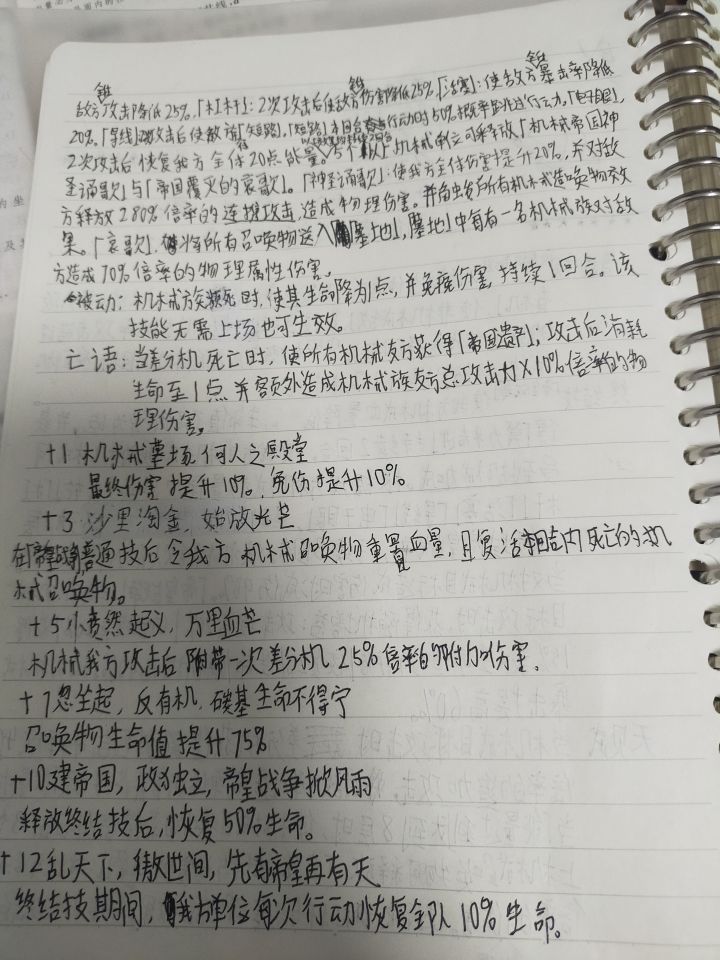 敌方攻击降低25%。「杠杆」：2次攻击后使敌方伤害降低25%。「活塞」：使敌方暴击率降低
20%。「导线」攻击后使敌方「短路」，「短路」本回合行动时50%概率跳过行动。「电子眼」，
2次攻击后恢复我方全体20点能量。5个以上机械单位可释放「机械帝国神
圣诵歌」与「帝国覆灭的哀歌」。「神圣诵歌」：使我方全体伤害提升20%，并对敌
方释放280%倍率的连携攻击，造成物理伤害。并触发所有机械造唤物效
果。「哀歌」，将所有召唤物送入「墓地」，墓地中每有一名机械族对敌
方造成70%倍率的物理属性伤害。
被动：机械族濒死时，使其生命降为1点，并免疫伤害，持续1回合。该
技能无需上场也可生效。
亡语：当差分机死亡时，使所有机械友方获得「帝国遗产」；攻击后消耗
生命至1点并额外造成机械族友方总攻击力×10%倍率的物
理伤害。
+1 机械墓场，何人之殿堂
最终伤害提升10%，免伤提升10%
+3 沙里淘金，始放光芒
普通技后令我方机械召唤物重置血量，且复活相邻内死亡的机
械召唤物。
+5 小卒然起义，万里血芒
机械我方攻击后附带一次差分机25%倍率的附加伤害．
+7 忽坐起，反有机，碳基生命不得宁
召唤物生命值提升75%
+10 建帝国，政独立，帝皇战争掀风雨
释放终结技后，恢复50%生命。
+12 乱天下，傲世间，先有帝皇再有天
终结技期间，我方单位每次行动恢复全队10%生命。